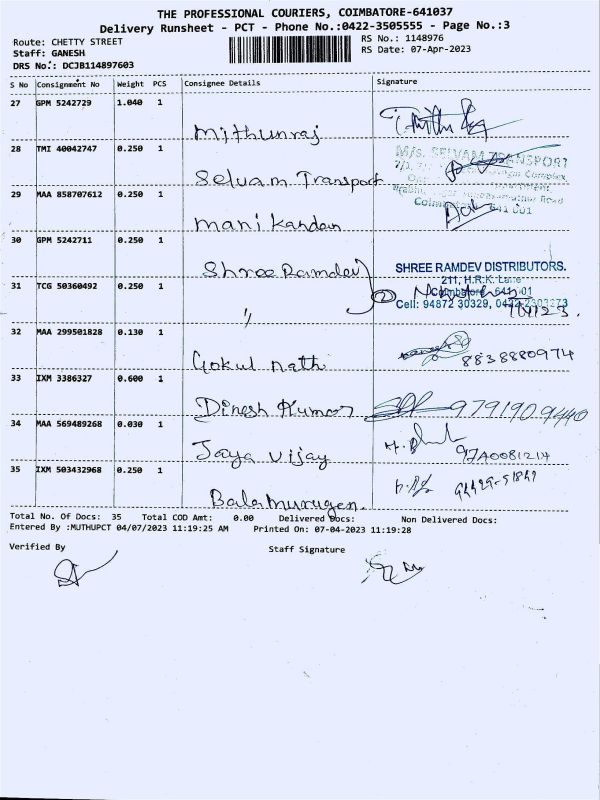 THE PROFESSIONAL COURIERS, COIMBATORE-641037
Delivery Runsheet - PCT - Phone No.:0422-3505555 - Page No.:3
Route: CHETTY STREET
RS No.: 1148976
Staff: GANESH
RS Date: 07-Apr-2023
DRS No.: DCJB114897603
S No Consignment No Weight PCS Consignee Details Signature
27 GPM 5242729 1.040 1 Mithunraj
28 TMI 40042747 0.250 1 Selvam Transport
M/s. SELVAM TRANSPORT
29 MAA 858707612 0.250 1 Manikandan
30 GPM 5242711 0.250 1 Shree Ramdev
SHREE RAMDEV DISTRIBUTORS.
211, H.R.K. Lane
31 TCG 50360492 0.250 1 "
2
Cell: 94872 30329, 0422-2303273
32 MAA 299501828 0.130 1 Gokul nath
8838880974
33 IXM 3386327 0.600 1 Dinesh Kumar 9791909440
34 MAA 569489268 0.030 1 Jaya Vijay
9740081214
35 IXM 503432968 0.250 1 Balamurugan
Total No. Of Docs: 35 Total COD Amt: 0.00 Delivered Docs: Non Delivered Docs:
Entered By :MUTHUPCT 04/07/2023 11:19:25 AM Printed On: 07-04-2023 11:19:28
Verified By Staff Signature